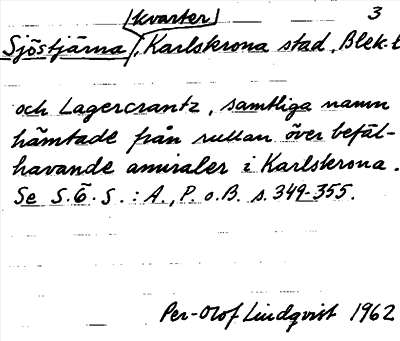 kvarter 3
Sjöstjärna, Karlskrona stad, Blek.l
och Lagercrantz, samtliga namn
hämtade från rullan över befäl-
havande amiraler i Karlskrona.
Se S.Ö.S.: A., P. o. B. s. 349-355.
Per-Olof Lindqvist 1962